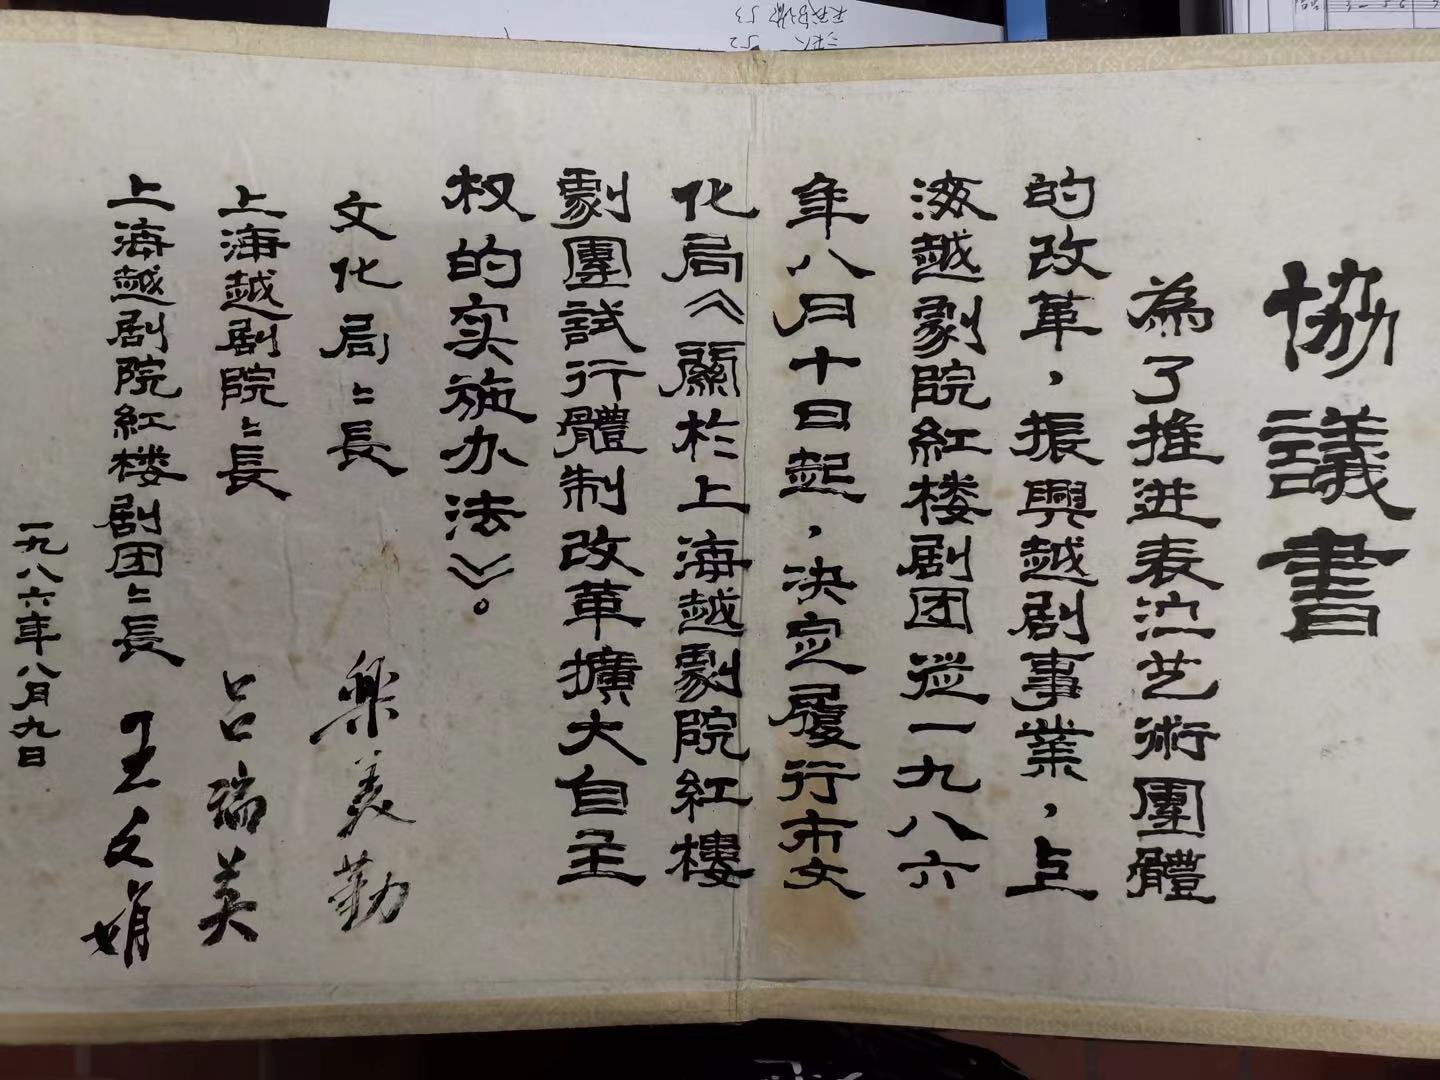 協議書
為了推进表演艺術團體
的改革，振興越剧事業，上
海越劇院紅楼剧团從一九八六
年八月十日起，决定履行市文
化局《關於上海越劇院紅樓
劇團試行體制改革擴大自主
权的实施办法》。
文化局〻長
樂美勤
上海越剧院〻長
吕瑞英
上海越剧院紅楼剧团〻長
王文娟
一九八六年八月九日